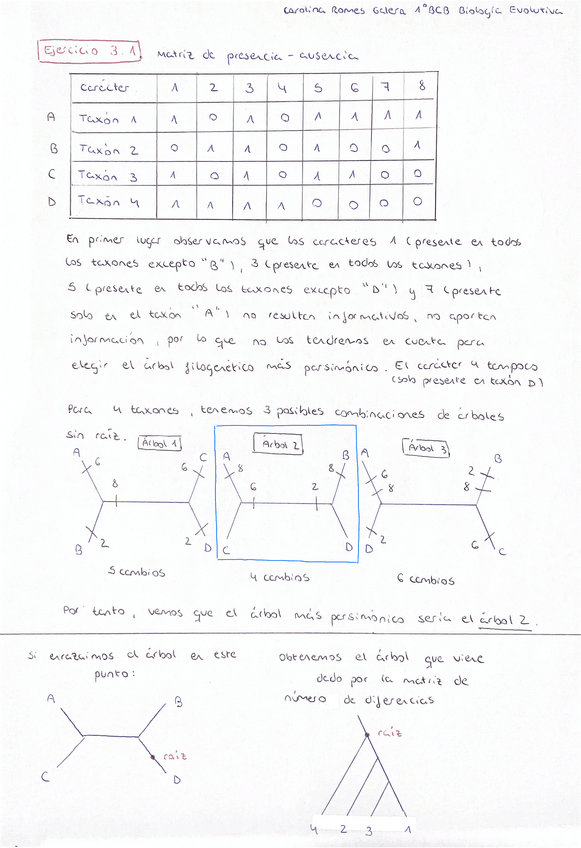 Carolina Romes Galera 1ºBCB Biología Evolutiva
Ejercicio 3.1 Matriz de presencia - ausencia
Carácter 1 2 3 4 5 6 7 8
A Taxón 1 1 0 1 0 1 1 1 1
B Taxón 2 0 1 1 0 1 0 0 1
C Taxón 3 1 0 1 0 1 1 0 0
D Taxón 4 1 1 1 1 0 0 0 0
En primer lugar observamos que los caracteres 1 (presente en todos
los taxones excepto "B"), 3 (presente en todos los taxones),
5 (presente en todos los taxones excepto "D") y 7 (presente
solo en el taxón "A") no resultan informativos, no aportan
información, por lo que no los tendremos en cuenta para
elegir el árbol filogenético más parsimónico. El carácter 4 tampoco
(solo presente en taxón D)
Para 4 taxones, tenemos 3 posibles combinaciones de árboles
sin raíz.
Árbol 1
A 6 C 6 8 B 2 2 D
5 cambios
Árbol 2
A 8 B 8 6 2 C D
4 cambios
Árbol 3
A 6 8 B 2 8 D 2 6 C
6 cambios
Por tanto, vemos que el árbol más parsimónico sería el árbol 2.
Si enraizamos el árbol en este
punto:
A B
raíz
C D
obtenemos el árbol que viene
dado por la matriz de
número de diferencias
raíz
4 2 3 1